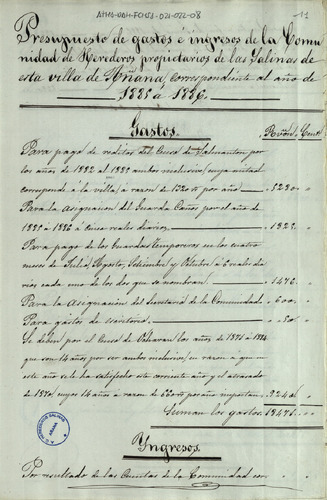 AHHA-UDH-FO-53-021-022-08
11
Presupuesto de gastos é ingresos de la Comu
nidad de Herederos propietarios de las Salinas de
esta villa de Añana, correspondiente al año de
1885 á 1886.
Gastos. Rs. Vn. Cent.
Para pago de reditos del Censo de Salmanton por
los años de 1882 al 1885 ambos inclusive, cuya mitad
corresponde á la villa, á razon de 1320 rs por año 5280
Para la asignacion del Guarda Caños por el año de
1885 á 1886 á cinco reales diarios 1825
Para pago de los Guardas temporeros en los cuatro
meses de Julio, Agosto, Setiembre y Octubre á 6 reales dia
rios cada uno de los dos que se nombran 1476
Para la asignacion del Secretario de la Comunidad 600
Para gastos de escritorio 50
Se deben por el Censo de los años de 1871 á 1884
que son 14 años por ser ambos inclusive, en razon á que en
este año solo ha satisfecho este corriente año y el atrasado
de 1870, cuyos 14 años á razon de 660 rs por año importan 9240
Suman los gastos 18471
Ingresos.
Por resultado de las Cuentas de la Comunidad con